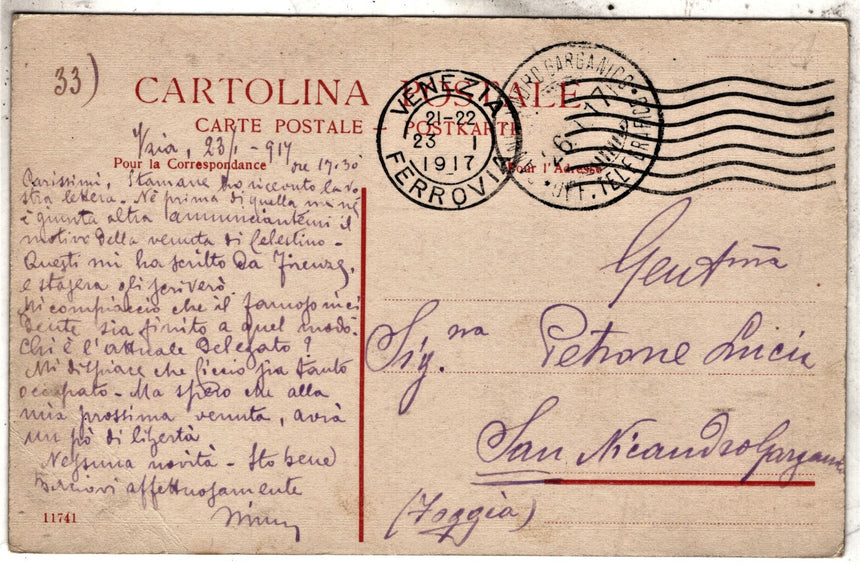 33)
CARTOLINA POSTALE
CARTE POSTALE – POSTKARTE
VENEZIA
21-22
23 I
1917
FERROVIA
GARGANICO
6 1 17
UFF. TELEGRAFICO
23/1 - 917
ore 17.30
Pour la Correspondance
Pour l'Adresse
Carissimi, Stamane ho ricevuto la vo
stra lettera. Nè prima di quella me ne
è giunta altra annunciantemi il
motivo della venuta di Celestino -
Questi mi ha scritto da Firenze,
e stasera gli scriverò
Mi compiaccio che il famoso inci
dente sia finito a quel modo.
Chi è l'attuale Delegato?
Mi dispiace che Ciccio sia tanto
occupato - Ma spero che alla
mia prossima venuta, avrà
un pò di libertà
Nessuna novità - Sto bene
Baciovi affettuosamente
11741
Gent.ma
Sig.na Petrone Lucia
San Nicandro Garganico
(Foggia)